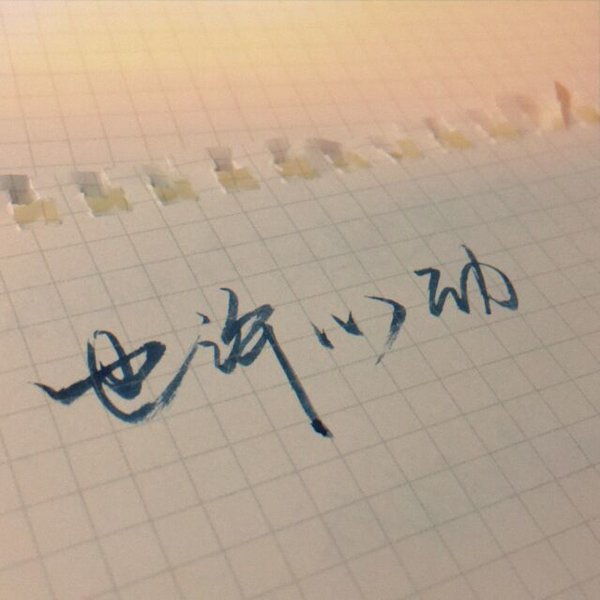 也许心动